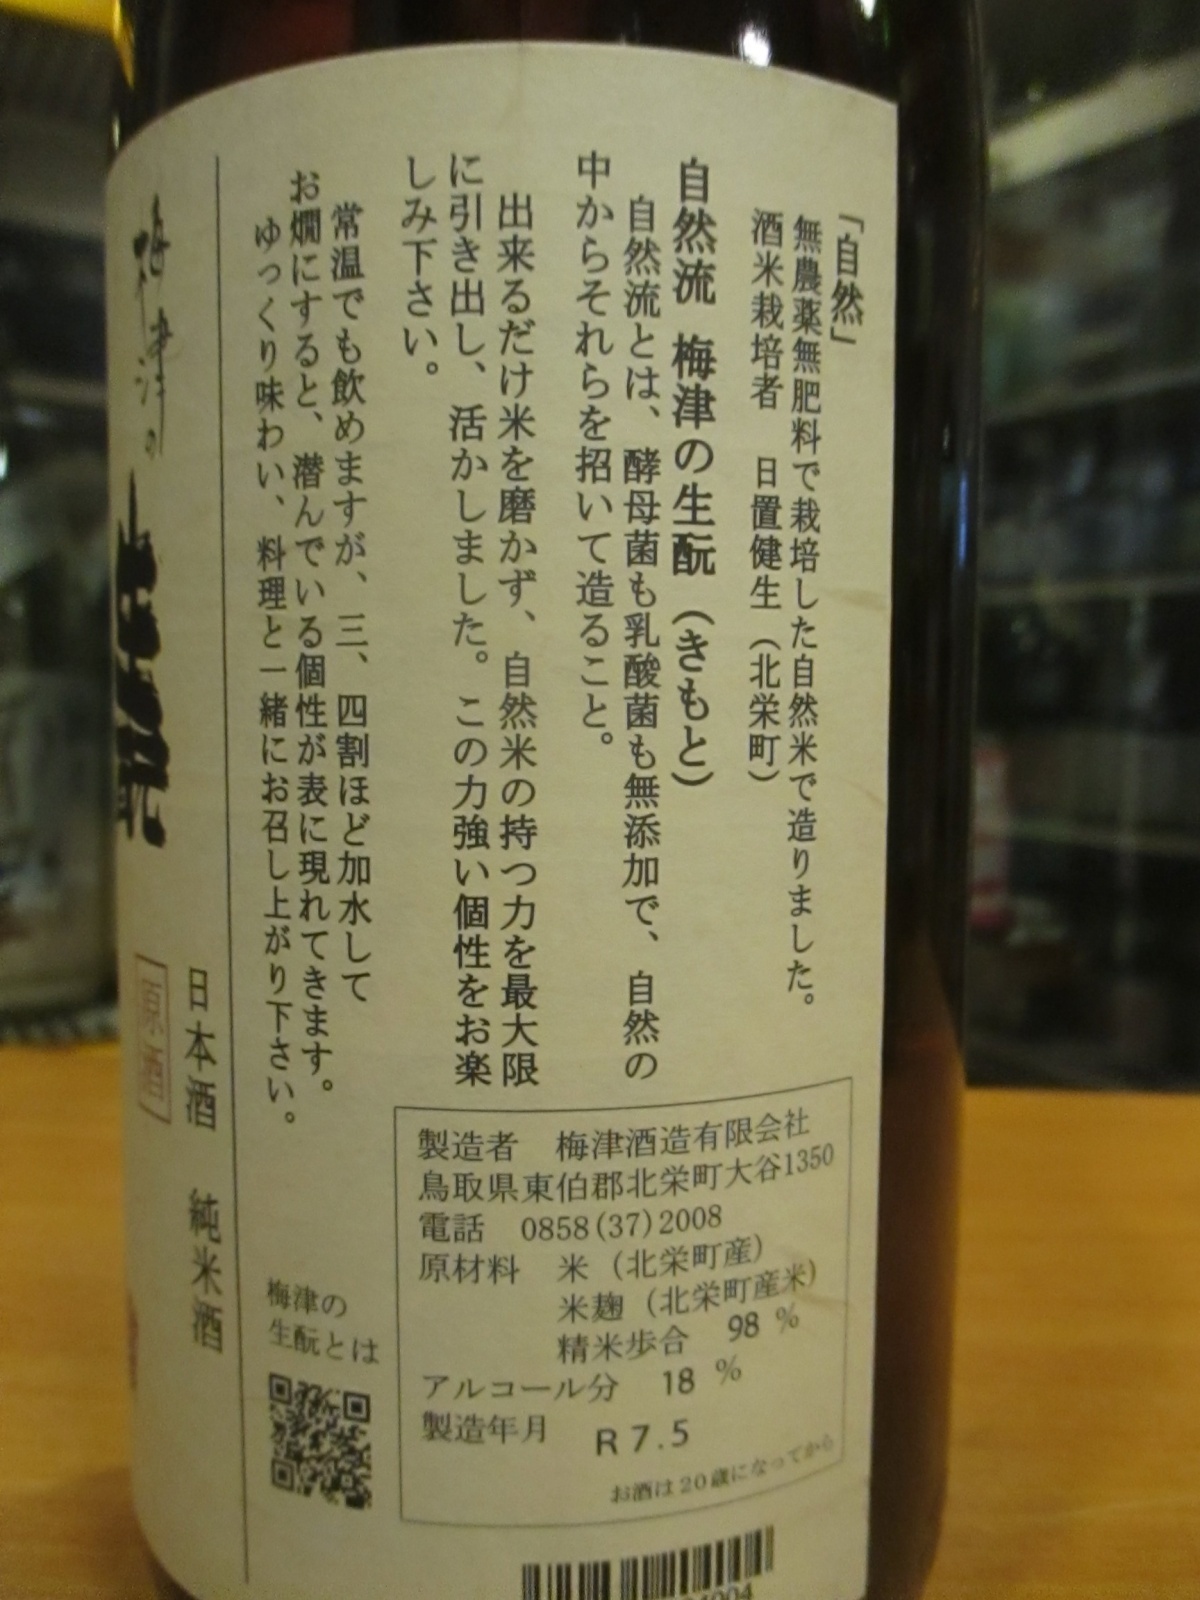 「自然」
無農薬無肥料で栽培した自然米で造りました。
酒米栽培者　日置健生（北栄町）
自然流　梅津の生酛（きもと）
自然流とは、酵母菌も乳酸菌も無添加で、自然の
中からそれらを招いて造ること。
出来るだけ米を磨かず、自然米の持つ力を最大限
に引き出し、活かしました。この力強い個性をお楽
しみ下さい。
常温でも飲めますが、三、四割ほど加水して
お燗にすると、潜んでいる個性が表に現れてきます。
ゆっくり味わい、料理と一緒にお召し上がり下さい。
製造者　梅津酒造有限会社
鳥取県東伯郡北栄町大谷1350
電話　0858(37)2008
原材料　米（北栄町産）
米麹（北栄町産米）
精米歩合　98 %
アルコール分　18 %
製造年月　R7.5
お酒は20歳になってから
梅津の
生酛とは
日本酒　純米酒
原酒
梅津の
生酛